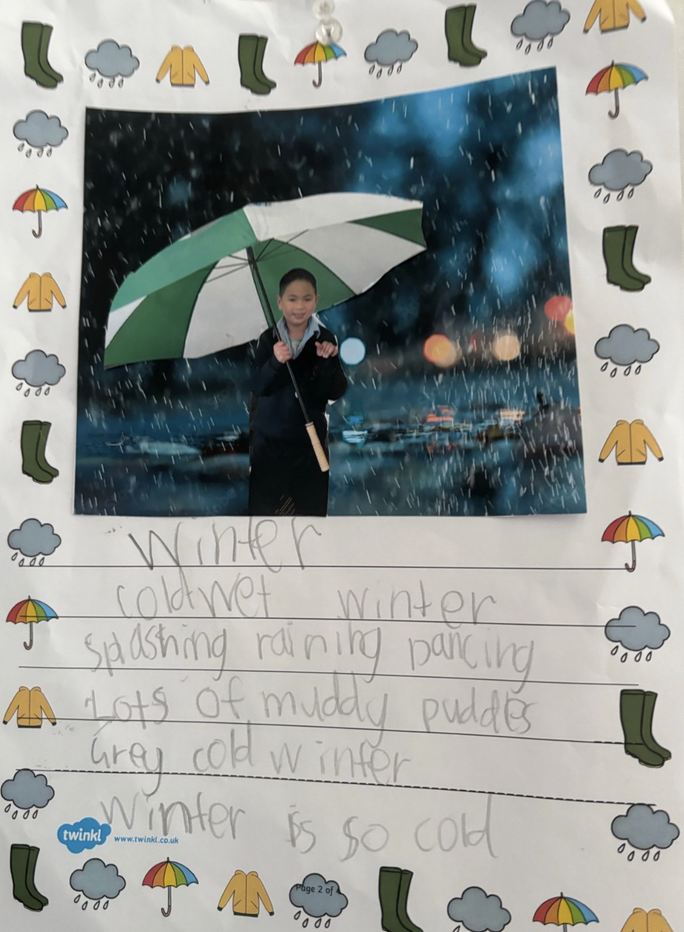 Winter
cold wet winter
splashing raining Dancing
Lots of muddy puddles
Grey cold winter
Winter is so cold
twinkl www.twinkl.co.uk
Page 2 of